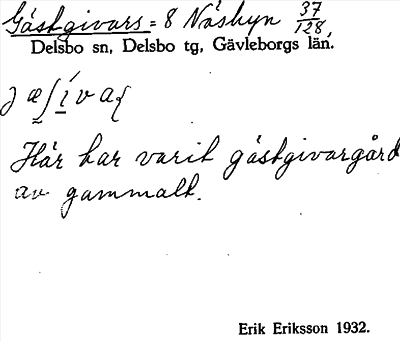 Gästgivars = 8 Näsbyn 37/128,
Delsbo sn, Delsbo tg, Gävleborgs län.
Här har varit gästgivargård
av gammalt.
Erik Eriksson 1932.